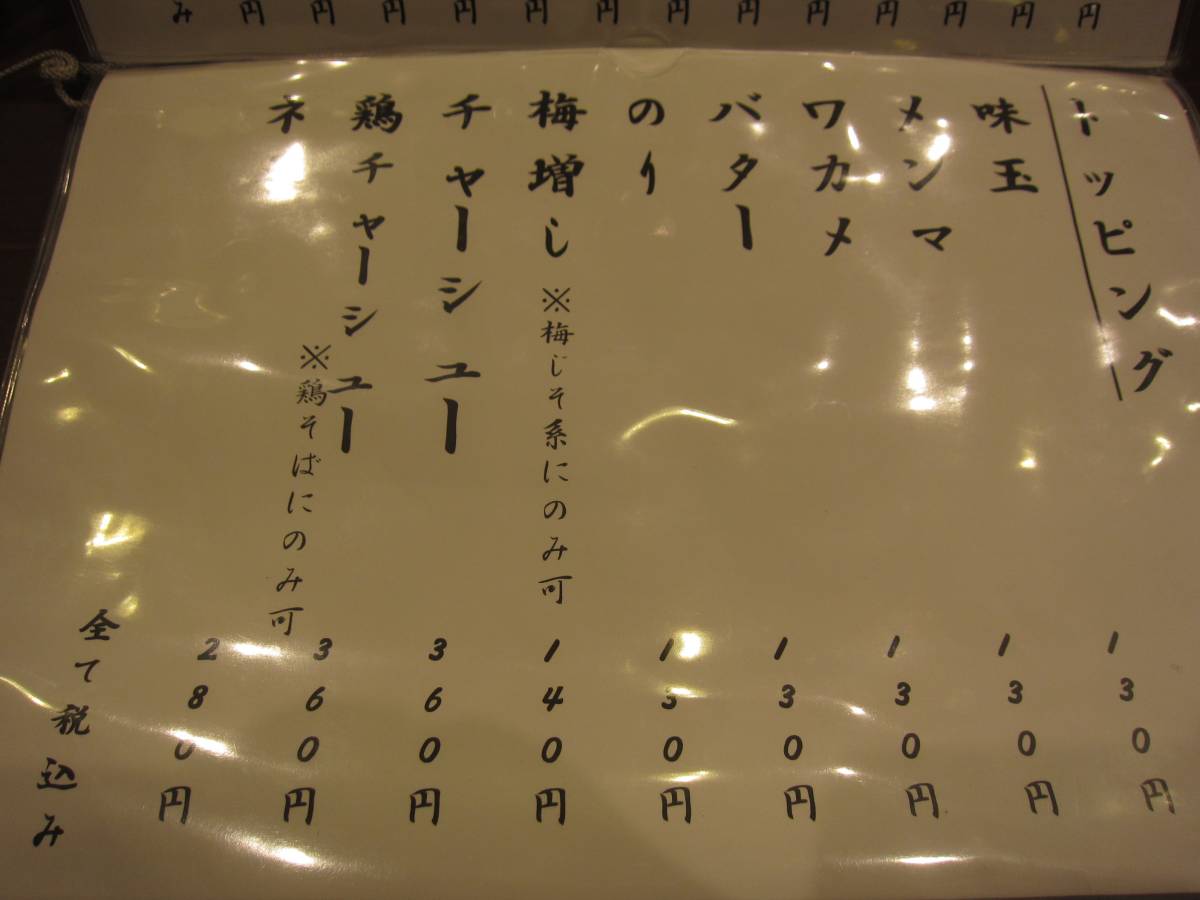 円
円
円
円
円
円
円
円
円
円
円
円
円
み
トッピング
味玉 130円
メンマ 130円
ワカメ 130円
バター 130円
のり 130円
梅増し ※梅じそ系にのみ可 140円
チャーシュー 360円
鶏チャーシュー ※鶏そばにのみ可 360円
ネ 280円
全て税込み